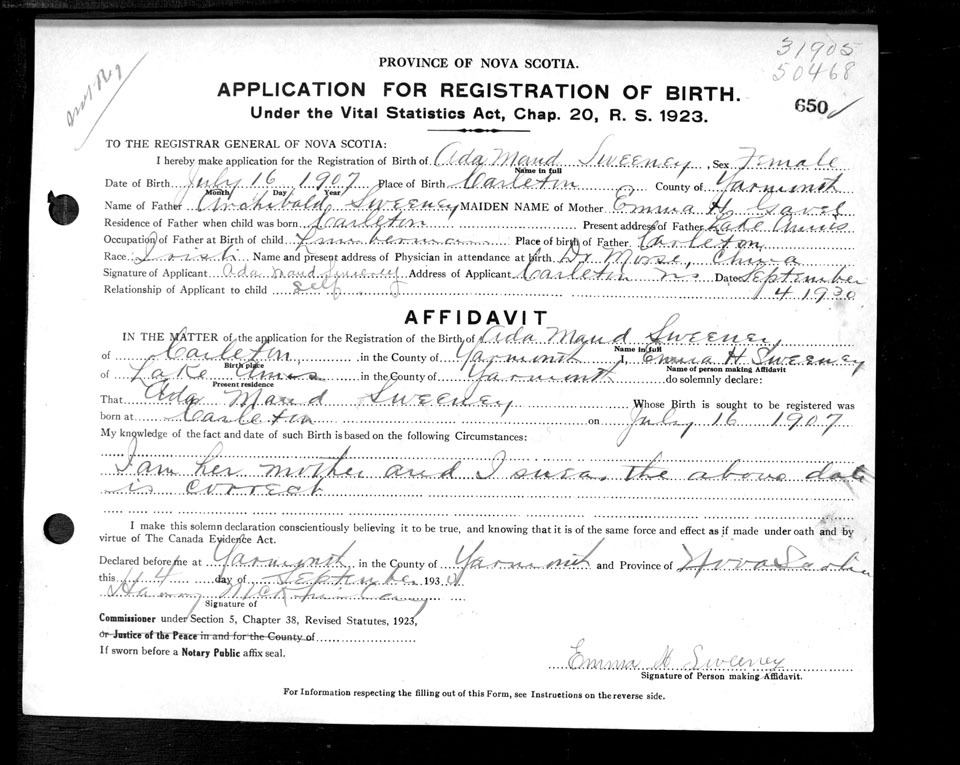 31905
50468
PROVINCE OF NOVA SCOTIA.
APPLICATION FOR REGISTRATION OF BIRTH.
650
Under the Vital Statistics Act, Chap. 20, R. S. 1923.
TO THE REGISTRAR GENERAL OF NOVA SCOTIA:
I hereby make application for the Registration of Birth of Ada Maud Sweeney, Sex Female
Name in full
Date of Birth July 16 1907 Place of Birth Carleton County of Yarmouth
Month Day Year
Name of Father Archibald Sweeney MAIDEN NAME of Mother Emma H.
Residence of Father when child was born Carleton Present address of Father Lake Annis
Occupation of Father at Birth of child Lumberman Place of birth of Father Carleton
Race Irish Name and present address of Physician in attendance at birth Dr Morse, China
Signature of Applicant Ada Maud Sweeney Address of Applicant Carleton NS Date September
Relationship of Applicant to child self 4 1930
AFFIDAVIT
IN THE MATTER of the application for the Registration of the Birth of Ada Maud Sweeney
Name in full
of Carleton, in the County of Yarmouth I, Emma H Sweeney
Birth place Name of person making Affidavit
of Lake Annis in the County of Yarmouth do solemnly declare:
Present residence
That Ada Maud Sweeney Whose Birth is sought to be registered was
born at Carleton on July 16 1907
My knowledge of the fact and date of such Birth is based on the following Circumstances:
I am her mother and I swea, the above date
is correct
I make this solemn declaration conscientiously believing it to be true, and knowing that it is of the same force and effect as if made under oath and by
virtue of The Canada Evidence Act.
Declared before me at Yarmouth in the County of Yarmouth and Province of Nova Scotia
this 4 day of September 1930
Harvey
Signature of
Commissioner under Section 5, Chapter 38, Revised Statutes, 1923,
or Justice of the Peace in and for the County of
If sworn before a Notary Public affix seal.
Emma H Sweeney
Signature of Person making Affidavit.
For Information respecting the filling out of this Form, see Instructions on the reverse side.